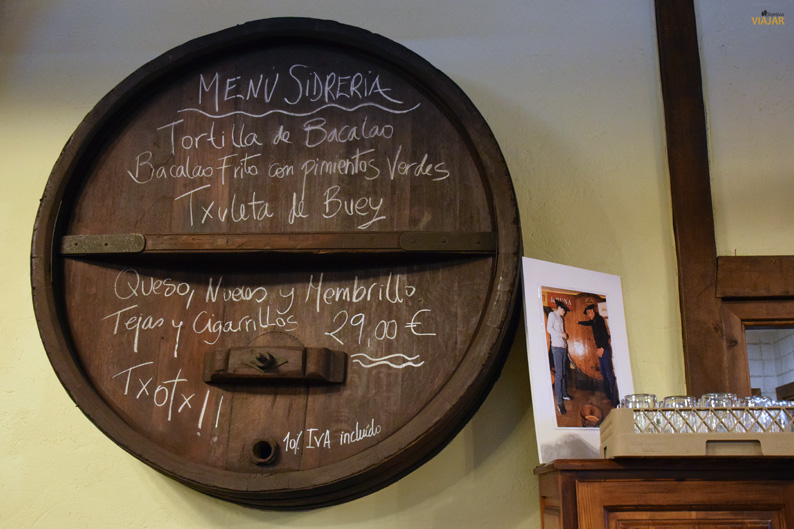 MENÚ SIDRERIA
Tortilla de Bacalao
Bacalao Frito con pimientos Verdes
Txuleta de Buey
Queso, Nueces y Membrillo
Tejas y Cigarrillos 29,00 €
Txotx!!
10% IVA incluido
VIAJAR